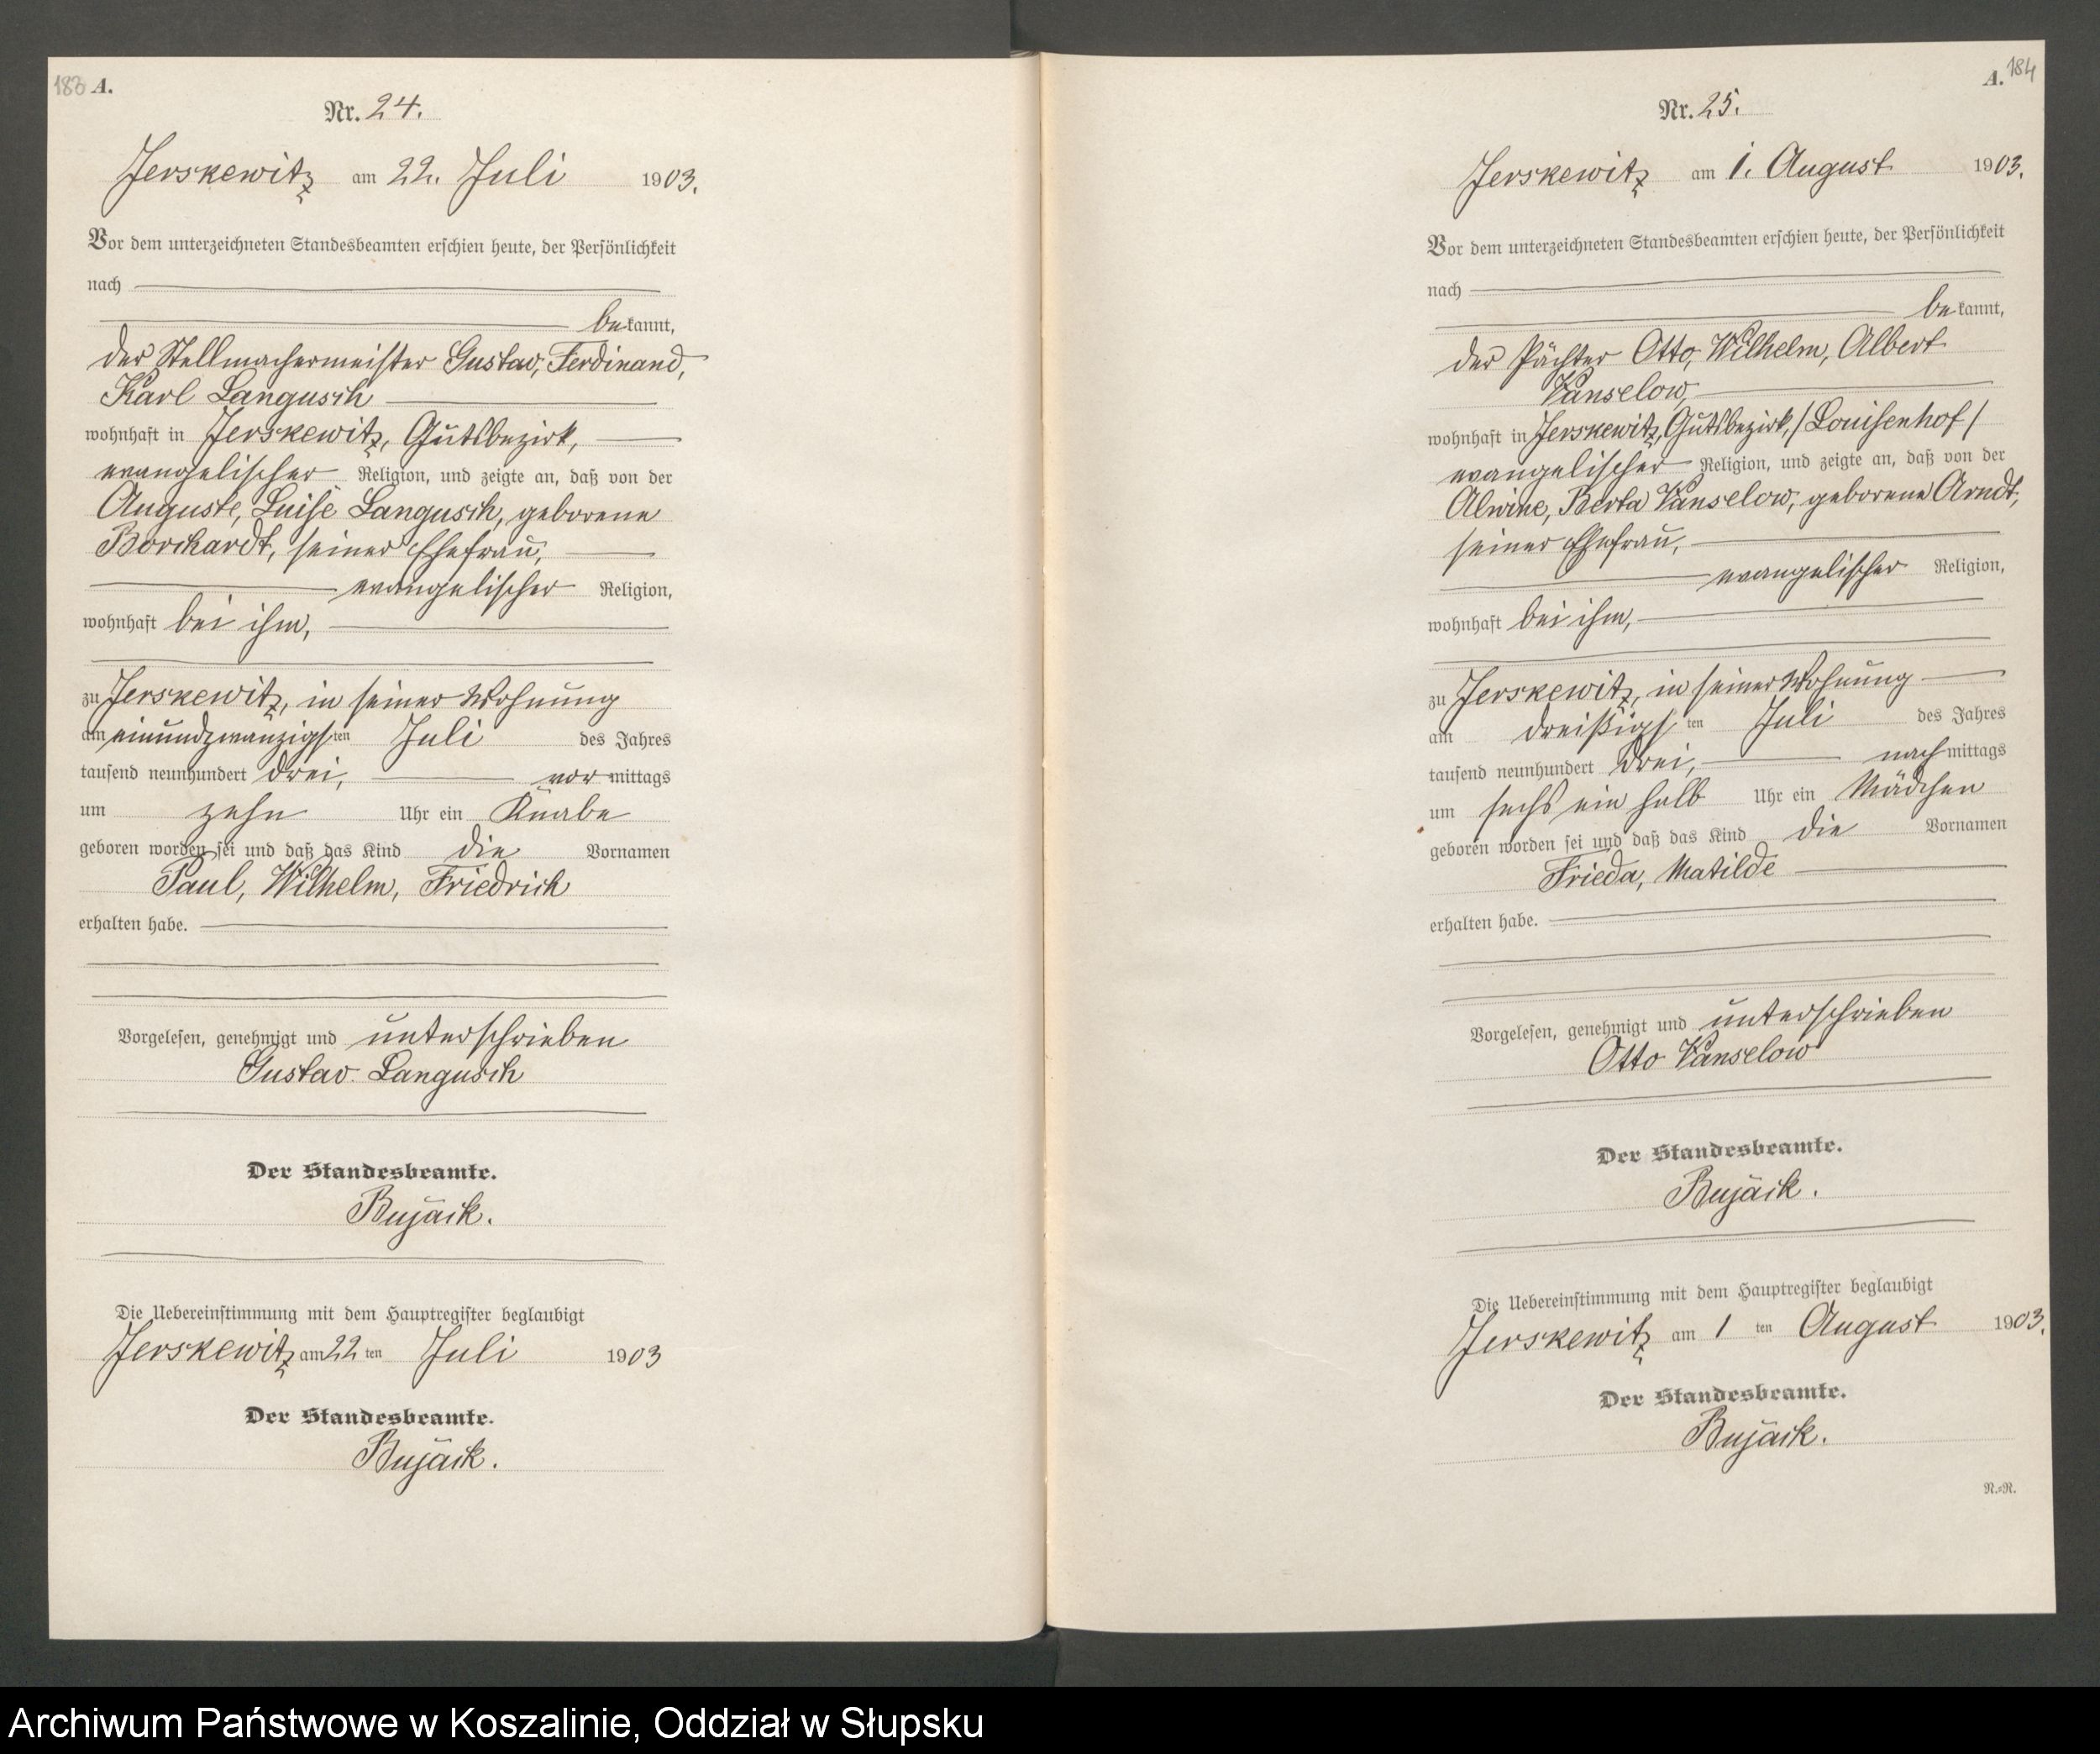 183 A.
Nr. 24.
Jerskewitz am 22. Juli 1903.
Vor dem unterzeichneten Standesbeamten erschien heute, der Persönlichkeit
nach
bekannt,
der Stellmachermeister Gustav, Ferdinand,
Karl Langusch
wohnhaft in Jerskewitz, Gutsbezirk,
evangelischer Religion, und zeigte an, daß von der
Auguste, Luise Langusch, geborene
Borchardt, seiner Ehefrau,
evangelischer Religion,
wohnhaft bei ihm,
zu Jerskewitz, in seiner Wohnung
am einundzwanzigsten Juli des Jahres
tausend neunhundert drei, vormittags
um zehn Uhr ein Knabe
geboren worden sei und daß das Kind die Vornamen
Paul, Wilhelm, Friedrich
erhalten habe.
Vorgelesen, genehmigt und unterschrieben
Gustav Langusch
Der Standesbeamte.
Bujack.
Die Uebereinstimmung mit dem Hauptregister beglaubigt
Jerskewitz am 22 ten Juli 1903
Der Standesbeamte.
Bujack.
A. 184
Nr. 25.
Jerskewitz am 1. August 1903.
Vor dem unterzeichneten Standesbeamten erschien heute, der Persönlichkeit
nach
bekannt,
der Pächter Otto, Wilhelm, Albert
Vanselow,
wohnhaft in Jerskewitz, Gutsbezirk, /Louisenhof/
evangelischer Religion, und zeigte an, daß von der
Alwine, Berta Vanselow, geborene Arndt,
seiner Ehefrau,
evangelischer Religion,
wohnhaft bei ihm,
zu Jerskewitz, in seiner Wohnung
am dreißigsten Juli des Jahres
tausend neunhundert drei, nachmittags
um sechs ein halb Uhr ein Mädchen
geboren worden sei und daß das Kind die Vornamen
Frieda, Matilde
erhalten habe.
Vorgelesen, genehmigt und unterschrieben
Otto Vanselow
Der Standesbeamte.
Bujack.
Die Uebereinstimmung mit dem Hauptregister beglaubigt
Jerskewitz am 1 ten August 1903.
Der Standesbeamte.
Bujack.
N.=R.
Archiwum Państwowe w Koszalinie, Oddział w Słupsku